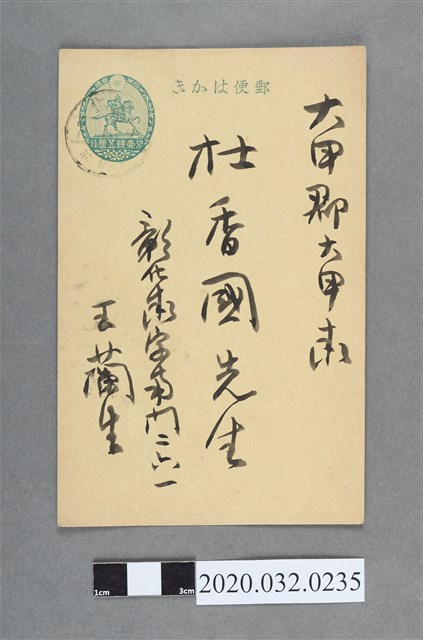 郵便はかき
壹錢五厘
大甲郡大甲街
杜香國先生
彰化街字南門二六一
王蘭生
1cm 3cm
2020.032.0235